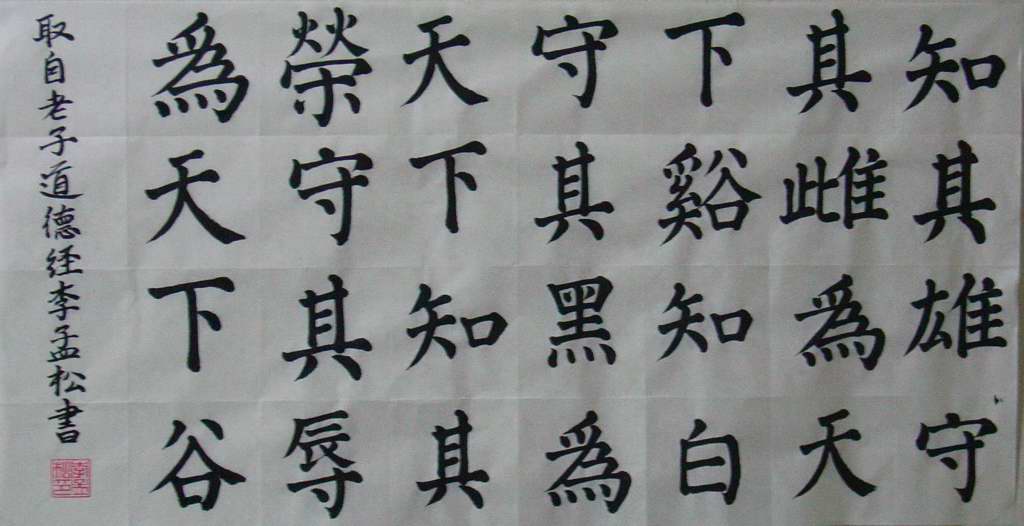 知其雄守
其雌爲天
下谿知白
守其黑爲
天下知其
榮守其辱
爲天下谷
取自老子道德经李孟松書